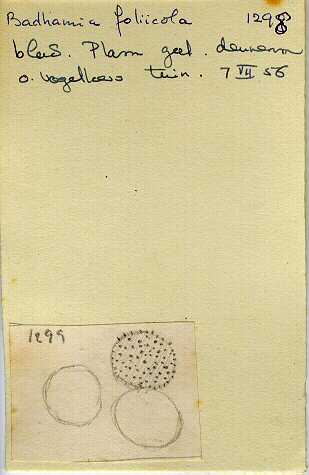 Badhamia foliicola 1298
blad. Plasm geel.
o. vogelkers tuin. 7 VII 56
1299